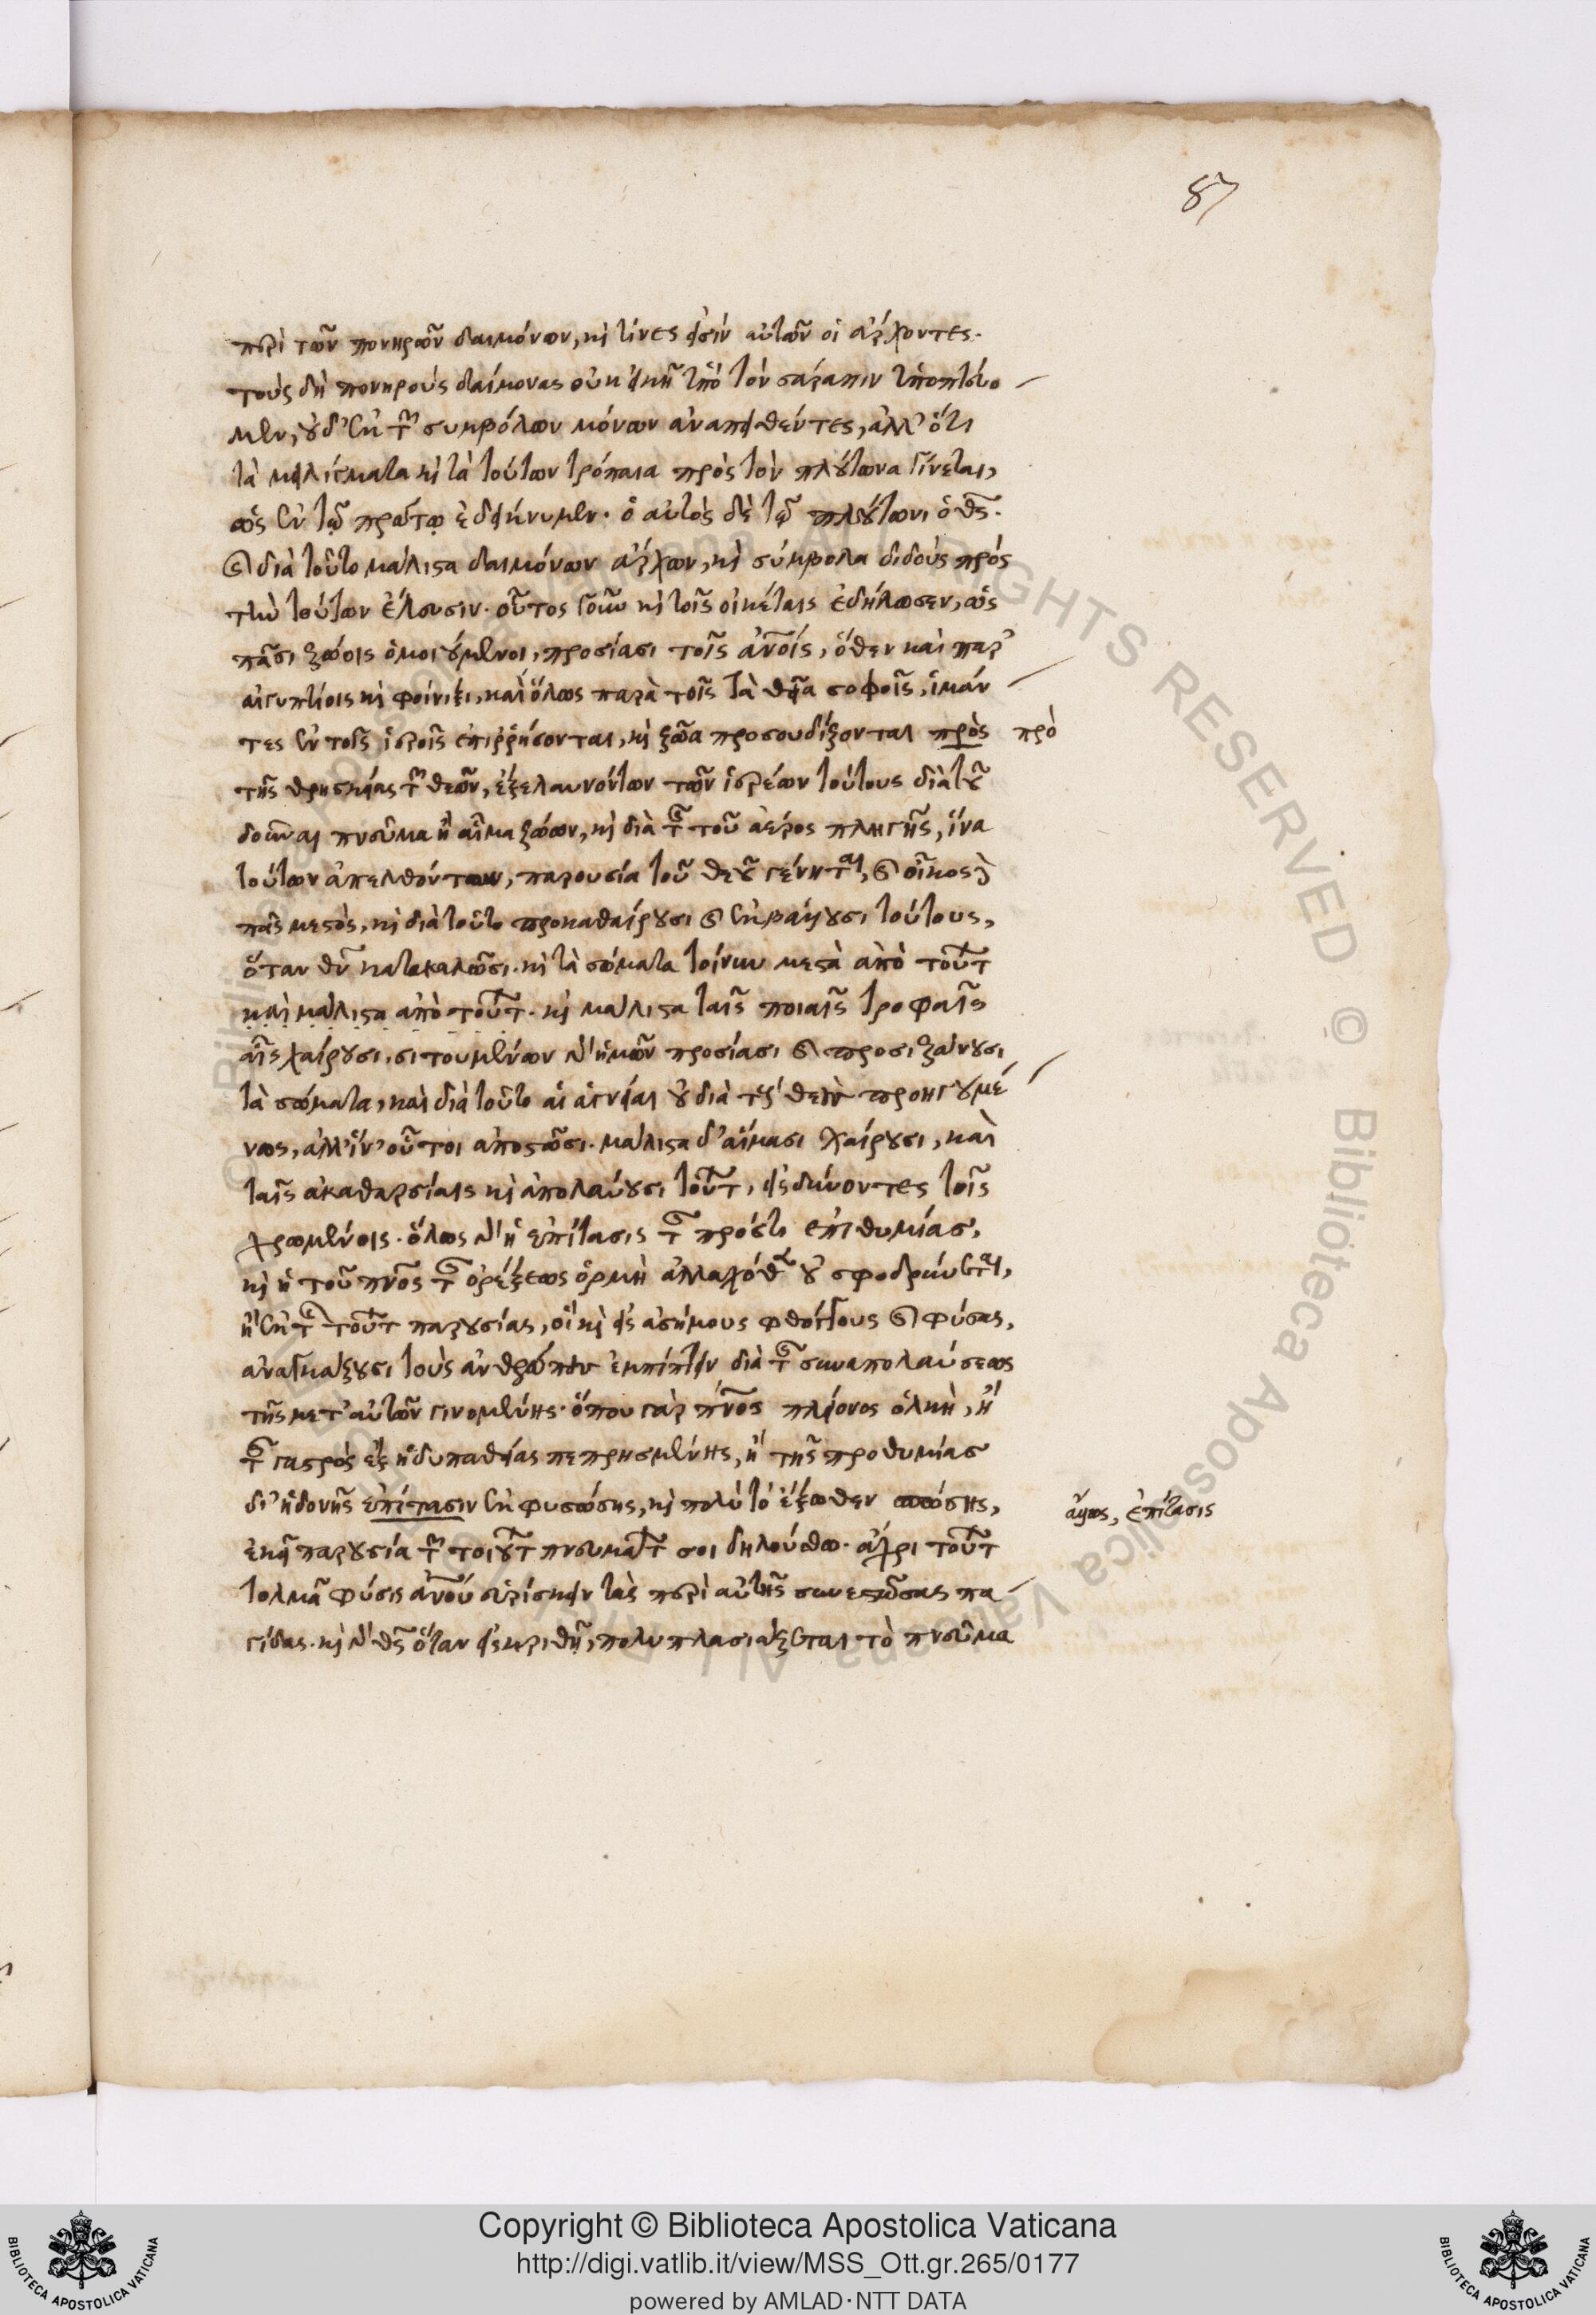 87
περὶ τῶν πονηρῶν δαιμόνων, κὶ τίνες εἰσὶν αὐτῶν οἱ ἄρχοντες.
τοὺς δὴ πονηροὺς δαίμονας οὐκ εἰκῆ ὑπὸ τὸν σάραπιν ὑποπτεύο
μεν, οὐδ' ἐκ τῶν συμβόλων μόνων ἀναπεισθέντες, ἀλλ' ὅτι
τὰ μειλίγματα κὶ τὰ τούτων τρόπαια πρὸς τὸν πλούτωνα γίνεται,
ὡς ἐν τῷ πρώτῳ ἐδείκνυμεν. ὁ αὐτὸς δὲ τῷ πλούτωνι ὁ θς.
κ διὰ τοῦτο μάλιστα δαιμόνων ἄρχων, κὶ σύμβολα διδοὺς πρὸς
τὴν τούτων ἔλασιν. οὗτος γοῦν κὶ τοῖς οἰκέταις ἐδήλωσεν, ὡς
πᾶσι ζώοις ὁμοιούμενοι, προσίασι τοῖς ἀνοῖς, ὅθεν καὶ παρ'
αἰγυπτίοις κὶ φοίνιξι, καὶ ὅλως παρὰ τοῖς τὰ θεῖα σοφοῖς, ἱμάν
τες ἐν τοῖς ἱεροῖς ἐπιρρήσονται, κὶ ζῶα προσουδίζονται πρὸς
πρὸ
τῆς θρησκείας τῶν θεῶν, ἐξελαυνόντων τῶν ἱερέων τούτους διὰ τοῦ
δοῦναι πνεῦμα ἢ αἷμα ζώων, κὶ διὰ τῆς τοῦ ἀέρος πληγῆς, ἵνα
τούτων ἀπελθόντων, παρουσία τοῦ θεοῦ γένηται, κ οἶκος
πᾶς μεστὸς, κὶ διὰ τοῦτο προκαθαίρουσι κ ἐκβάλλουσι τούτους,
ὅταν θν κατακαλῶσι. κὶ τὰ σώματα τοίνυν μεστὰ ἀπὸ τούτων
καὶ μάλιστα ἀπὸ τούτων. κὶ μάλιστα ταῖς ποιαῖς τροφαῖς
αἷς χαίρουσι. σιτουμένων δ' ἡμῶν προσίασι κ προσιζάνουσι
τὰ σώματα, καὶ διὰ τοῦτο αἱ ἁγνεῖαι οὐ διὰ τοὺς θεοὺς προηγουμέ
νως, ἀλλ' ἵν' οὗτοι ἀποστῶσι. μάλιστα δ' αἵμασι χαίρουσι, καὶ
ταῖς ἀκαθαρσίαις κὶ ἀπολαύουσι τούτων, εἰσδύνοντες τοῖς
χρωμένοις. ὅλως δ' ἡ ἐπίτασις τῆς πρός τι ἐπιθυμίας,
κὶ ἡ τοῦ πνος τῆς ὀρέξεως ὁρμὴ ἀλλαχόθεν οὐ σφοδρύνεται,
ἢ ἐκ τῆς τούτων παρουσίας, οἳ κὶ εἰς ἀσήμους φθόγγους κ φύσας,
ἀναγκάζουσι τοὺς ἀνθρώπους ἐμπίπτειν διὰ τῆς συναπολαύσεως
τῆς μετ' αὐτῶν γινομένης. ὅπου γὰρ πνος πλείονος ὁλκὴ, ἢ
τῆς γαστρὸς ἐξ ἡδυπαθείας πεπρησμένης, ἢ τῆς προθυμίας
δι' ἡδονῆς ἐπίτασιν ἐκφυσώσης, κὶ πολὺ τὸ ἔξωθεν σπώσης,
ἄλλως, ἐπίτασις
ἐκεῖ παρουσία τῶν τοιούτων πνευμάτων σοι δηλούσθω. ἄχρι τούτων
τολμᾶ φύσις ἀνου εὑρίσκειν τὰς περὶ αὐτῆς συνεστώσας πα
γίδας. κὶ δ' θς ὅταν εἰσκριθῆ, πολυπλασιάζεται τὸ πνεῦμα
Copyright © Biblioteca Apostolica Vaticana
http://digi.vatlib.it/view/MSS_Ott.gr.265/0177
powered by AMLAD·NTT DATA